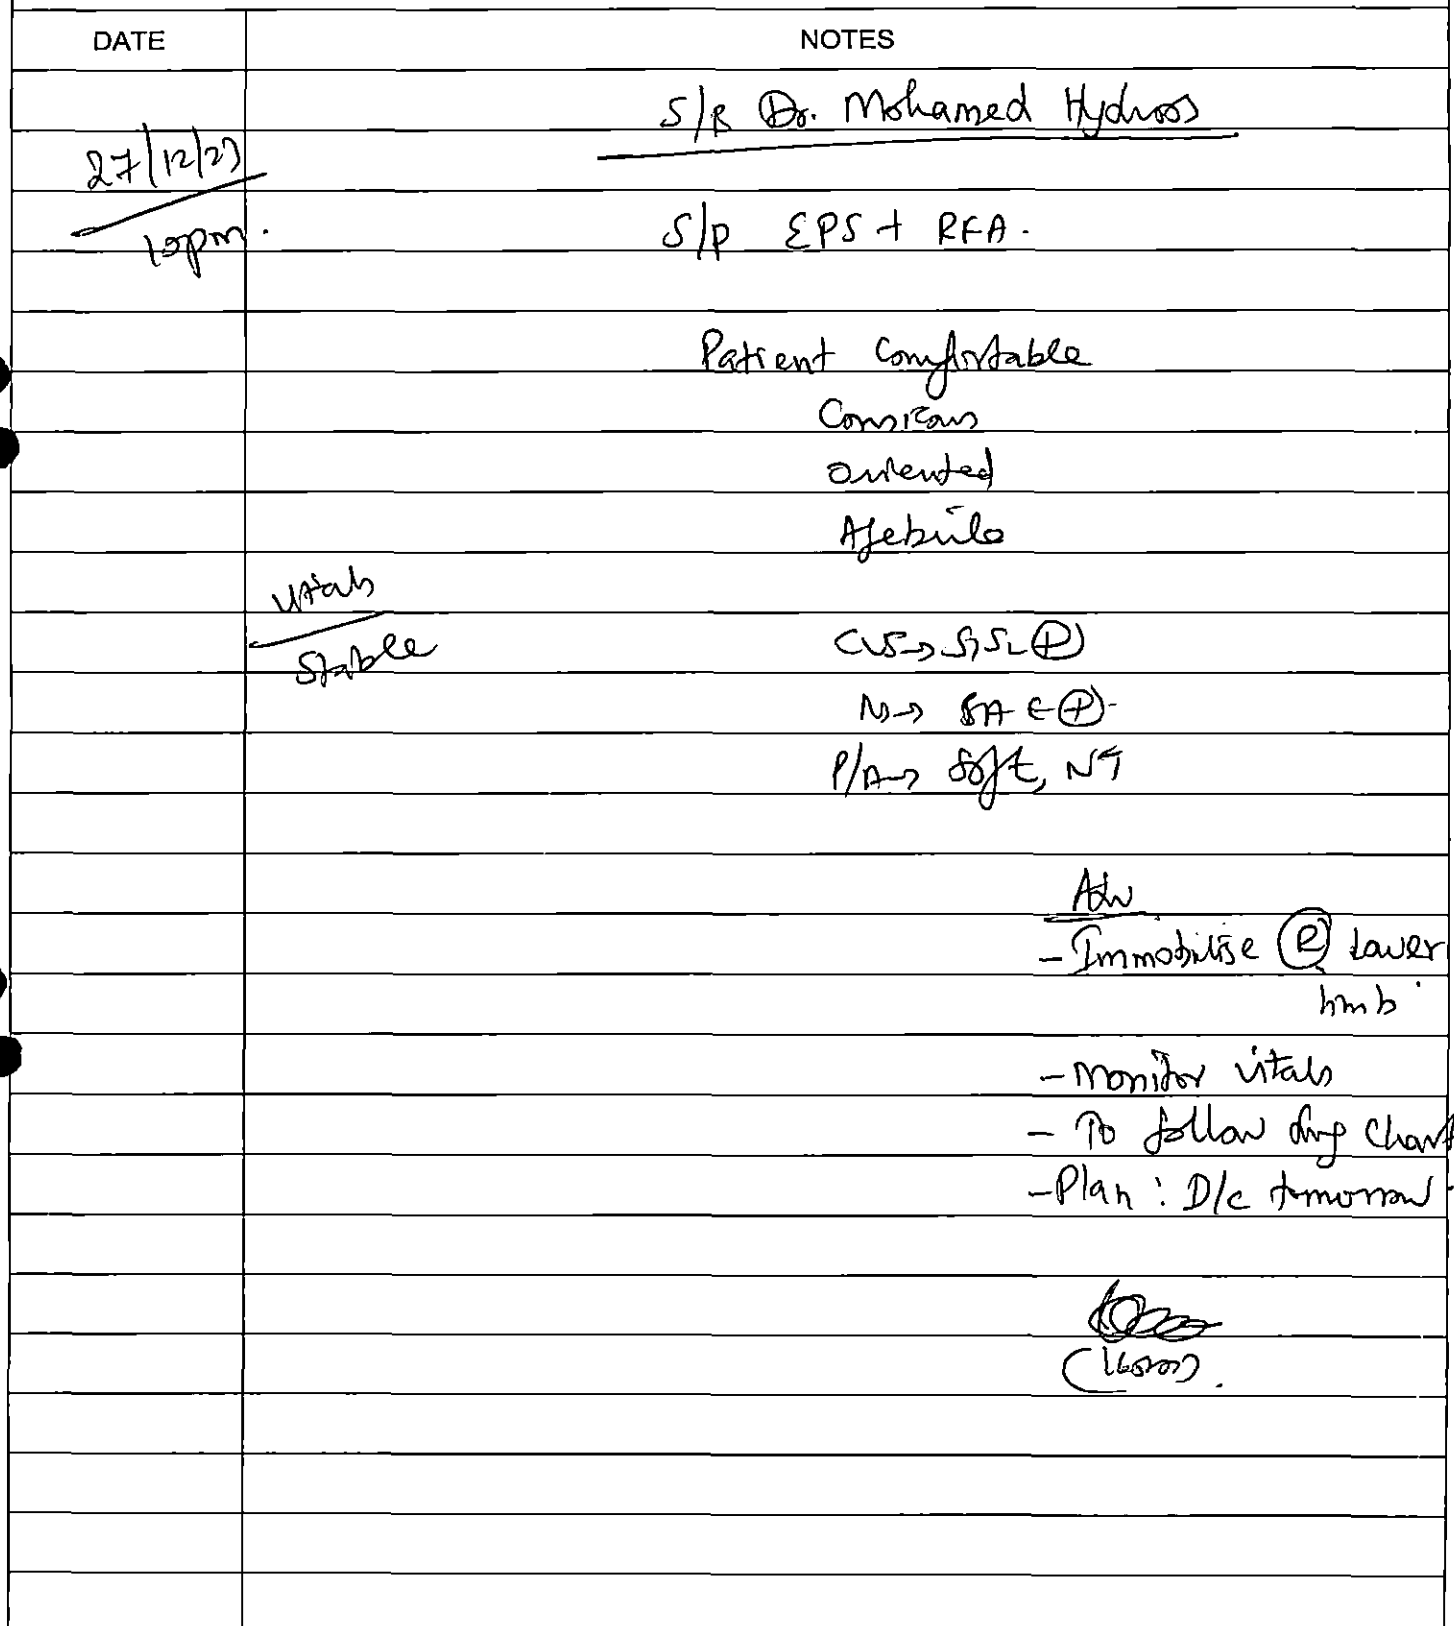 DATE NOTES
S/B Dr. Mohamed Hydroos
27/12/23
10pm.
S/P EPS + RFA.
Patient Comfortable
Consicous
Oriented
Afebrile
Vitals
Stable
CVS → S1S2 (+)
P/A → Soft, NT
Adv
- Immobilise (R) Lower
limb.
- Monitor vitals
- To follow drug Chart
- Plan : D/c tomorrow